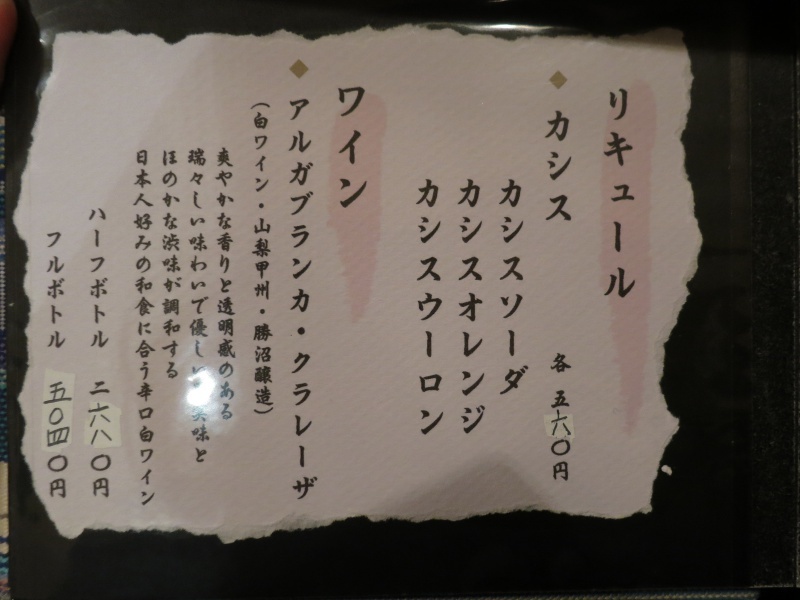 リキュール
◆カシス 各 五六〇円
カシスソーダ
カシスオレンジ
カシスウーロン
ワイン
◆アルガブランカ・クラレーザ
（白ワイン・山梨甲州・勝沼醸造）
爽やかな香りと透明感のある
瑞々しい味わいで優しい 味と
ほのかな渋味が調和する
日本人好みの和食に合う辛口白ワイン
ハーフボトル 二六八〇円
フルボトル 五〇四〇円